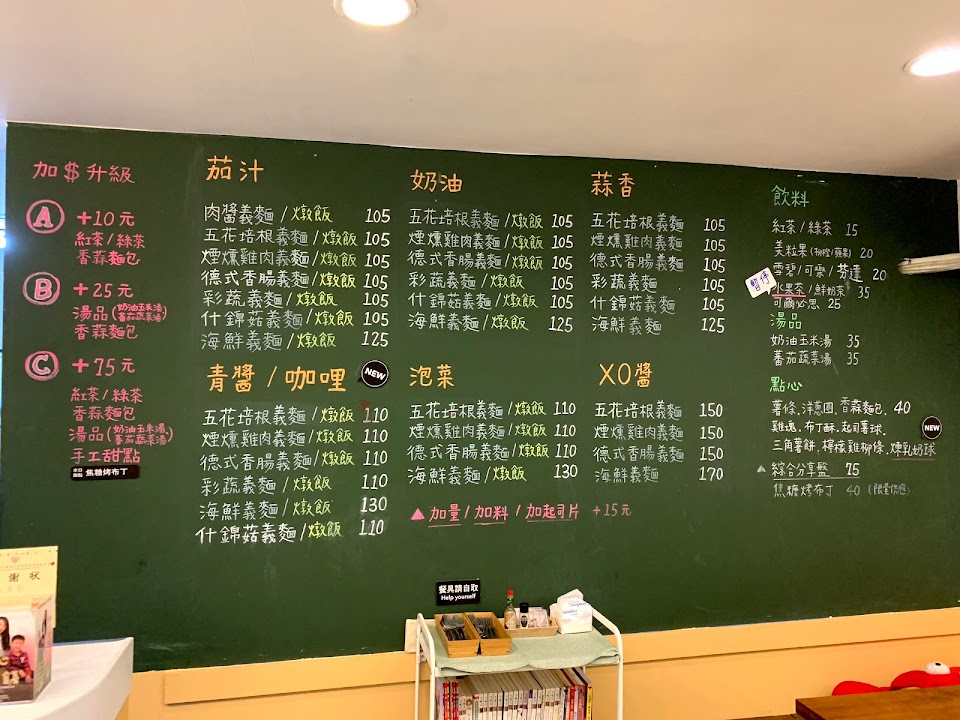 加$升級
A +10元
紅茶/綠茶
香蒜麵包
B +25元
湯品(奶油玉米湯/蕃茄蔬菜湯)
香蒜麵包
C +75元
紅茶/綠茶
香蒜麵包
湯品(奶油玉米湯/蕃茄蔬菜湯)
手工甜點
本日甜點 焦糖烤布丁
茄汁
肉醬義麵/燉飯 105
五花培根義麵/燉飯 105
煙燻雞肉義麵/燉飯 105
德式香腸義麵/燉飯 105
彩蔬義麵/燉飯 105
什錦菇義麵/燉飯 105
海鮮義麵/燉飯 125
奶油
五花培根義麵/燉飯 105
煙燻雞肉義麵/燉飯 105
德式香腸義麵/燉飯 105
彩蔬義麵/燉飯 105
什錦菇義麵/燉飯 105
海鮮義麵/燉飯 125
蒜香
五花培根義麵 105
煙燻雞肉義麵 105
德式香腸義麵 105
彩蔬義麵 105
什錦菇義麵 105
海鮮義麵 125
青醬/咖哩 NEW
五花培根義麵/燉飯 110
煙燻雞肉義麵/燉飯 110
德式香腸義麵/燉飯 110
彩蔬義麵/燉飯 110
海鮮義麵/燉飯 130
什錦菇義麵/燉飯 110
泡菜
五花培根義麵/燉飯 110
煙燻雞肉義麵/燉飯 110
德式香腸義麵/燉飯 110
海鮮義麵/燉飯 130
XO醬
五花培根義麵 150
煙燻雞肉義麵 150
德式香腸義麵 150
海鮮義麵 170
▲加量/加料/加起司片 +15元
飲料
紅茶/綠茶 15
美粒果(柳橙/蘋果) 20
雪碧/可樂/芬達 20
暫停
水果茶/鮮奶茶 35
可爾必思 25
湯品
奶油玉米湯 35
蕃茄蔬菜湯 35
點心
薯條.洋蔥圈.香蒜麵包. 40
雞塊.布丁酥.起司薯球.
三角薯餅.檸檬雞柳條.煉乳奶球 NEW
▲綜合分享盤 75
焦糖烤布丁 40 (限量供應)
餐具請自取
Help yourself
謝狀